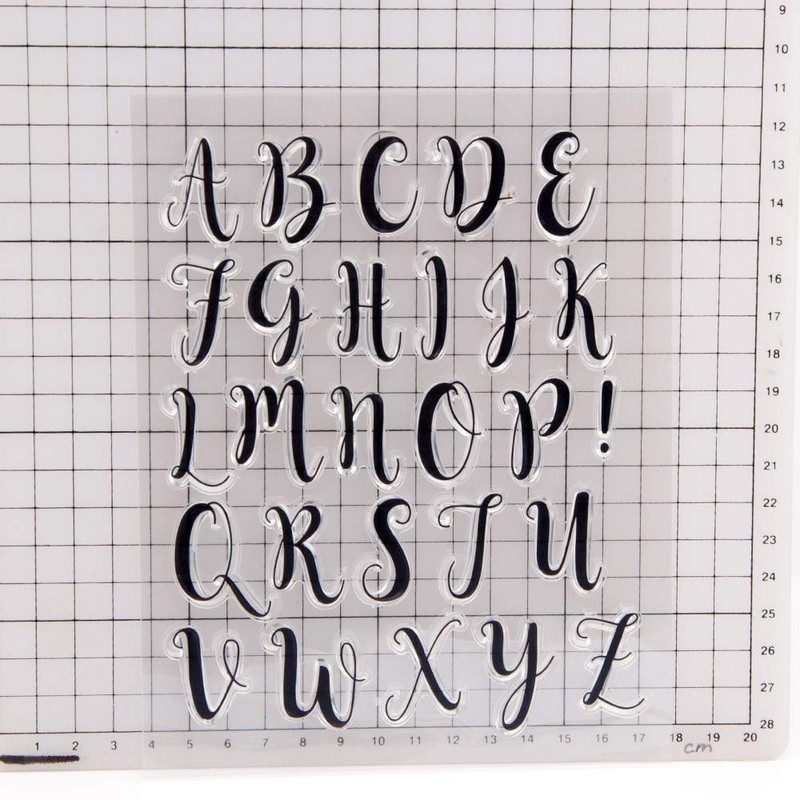 9
10
11
12
A B C D E
13
14
15
F G H I J K
16
17
18
L M N O P !
19
20
21
22
Q R S T U
23
24
25
V W X Y Z
26
27
28
1 2 3 4 5 6 7 8 9 10 11 12 13 14 15 16 17 18 19 20
cm